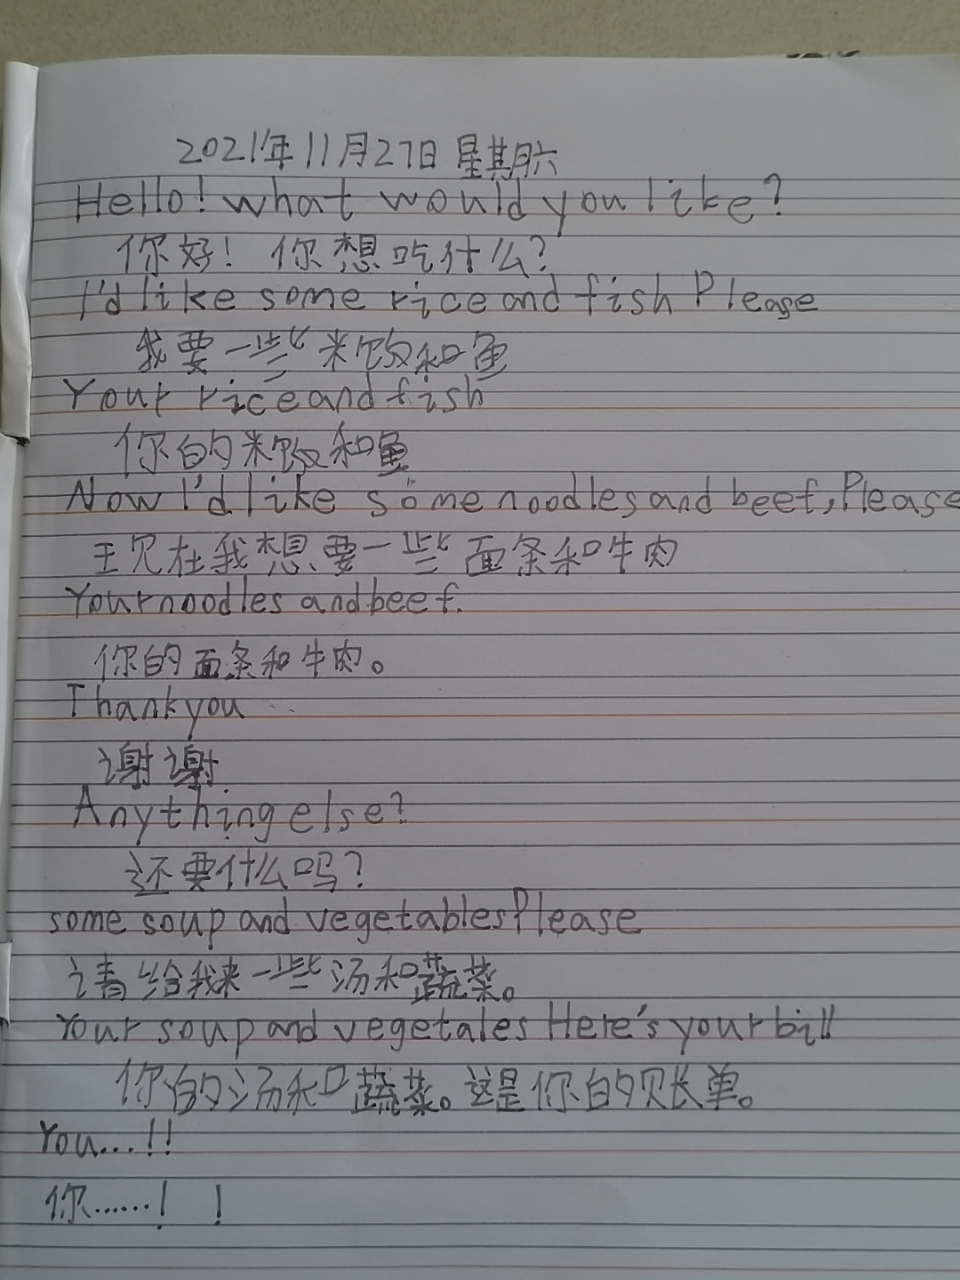 2021年11月27日 星期六
Hello! what would you like?
你好! 你想吃什么?
I'd like some rice and fish Please
我要一些米饭和鱼
Your rice and fish
你的米饭和鱼
Now I'd like some noodles and beef, Please
现在我想要一些面条和牛肉
Your noodles and beef.
你的面条和牛肉。
Thank you
谢谢
Anything else?
还要什么吗?
some soup and vegetables Please
请给我来一些汤和蔬菜。
Your soup and vegetales Here's your bill
你的汤和蔬菜。这是你的账单。
You...!!
你……! !